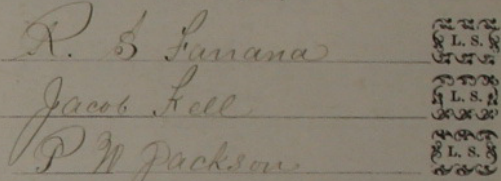 R. S Farrana L. S.
Jacob Kell L. S.
P W Jackson L. S.